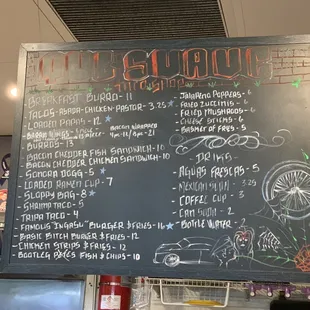 QUE SUAVE
BREAKFAST BURRO - 11
TACOS - ASADA - CHICKEN - PASTOR - 3.25
LOADED PAPAS - 12
BURROS - 13
BACON CHEDDER FISH SANDWICH - 10
BACON CHEDDER CHICKEN SANDWICH - 10
SONORA DOGG - 5
LOADED RAMEN CUP - 7
SLOPPY BAG - 8
SHRIMP TACO - 5
TRIPA TACO - 4
BURGER & FRIES - 16
BASIC BITCH BURGER & FRIES - 12
CHICKEN STRIPS & FRIES - 12
BOOTLEG PETES FISH & CHIPS - 10
BACON WRAPPED
JALAPENO POPPERS - 6
FRIED ZUCCHINIS - 6
FRIED MUSHROOMS - 6
CHEESE STICKS - 6
BASKET OF FRIES - 5
DRINKS
AGUAS FRESCAS - 5
MEXICAN SODA - 3.25
COFFEE CUP - 3
CAN SODA - 2
BOTTLE WATER - 2